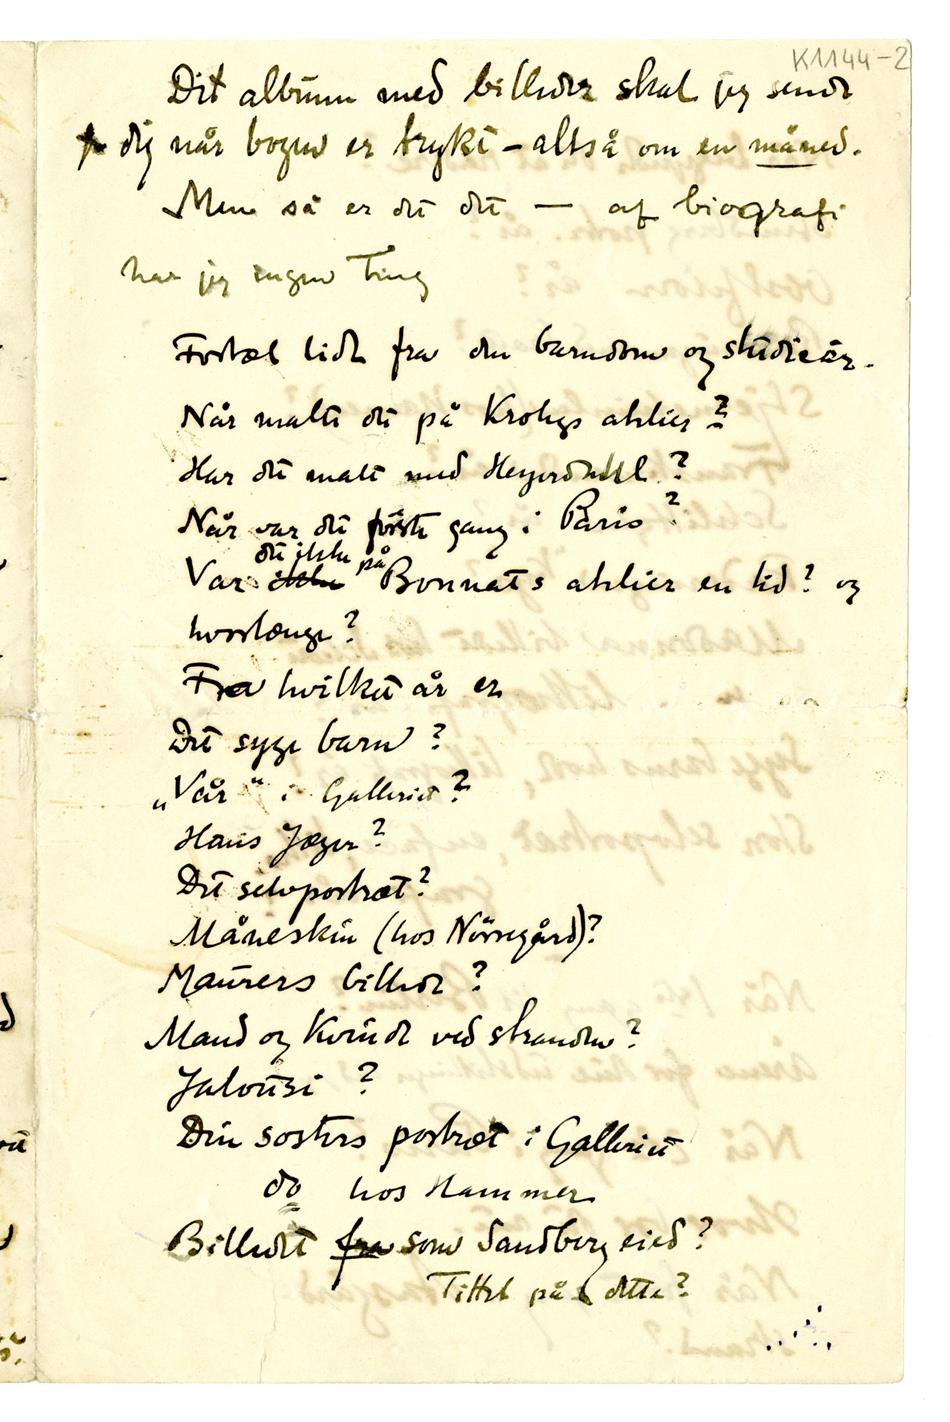 K1144-2
Dit album med billeder skal jeg sende
dig når bogen er trykt – altså om en måned.
Men så er det det — af biografi
har jeg ingen Ting
Fortæl lidt fra din barndom og studieår.
Når malte du på Krohgs atelier?
Har du malt med Heyerdahl?
Når var du første gang i Paris?
du ikke på
Var ikke Bonnats atelier en tid? og
hvorlænge?
Fra hvilket år er
Det syge barn?
„Vår" i Galleriet?
Hans Jæger?
Dit selvportræt?
Måneskin (hos Nörregård)?
Maurers billede?
Mand og Kvinde ved stranden?
Jalousi?
Din søsters portræt i Galleriet
do hos Hammer
Billedet fra som Sandberg eied?
Tittel på dette?